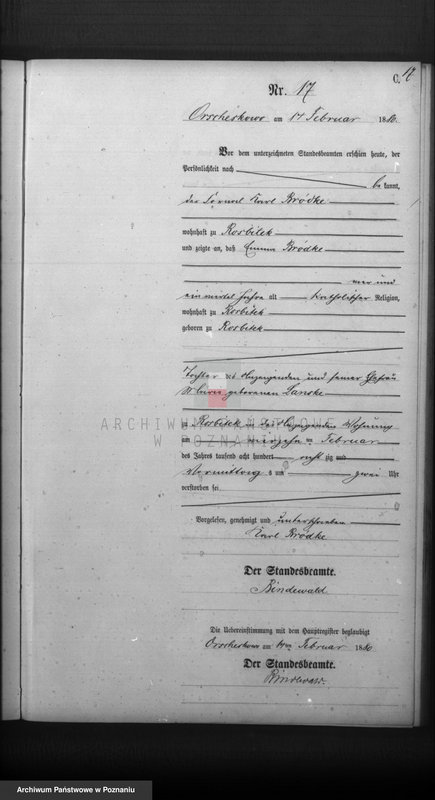 C. 17
Nr. 17
am 17 Februar 1880.
Vor dem unterzeichneten Standesbeamten erschien heute, der
Persönlichkeit nach
be kannt,
der Fornal Karl Brödke
wohnhaft zu Rosbitek
und zeigte an, daß Emma Brödke
vier und
ein viertel Jahre alt katholischer Religion,
wohnhaft zu Rosbitek
geboren zu Rosbitek
Tochter des Anzeigenden und seiner Ehefrau
geborenen Lanske
ARCHIWUM PAŃSTWOWE
W POZNANIU
zu Rosbitek in des Anzeigenden Wohnung
am vierzehn ten Februar
des Jahres tausend acht hundert acht zig und
Vormittag s um zwei Uhr
verstorben sei
Vorgelesen, genehmigt und unterschrieben
Karl Brödke
Der Standesbeamte.
Bindewald
Die Uebereinstimmung mit dem Hauptregister beglaubigt
am Februar 1880
Der Standesbeamte.
Bindewald.
Archiwum Państwowe w Poznaniu